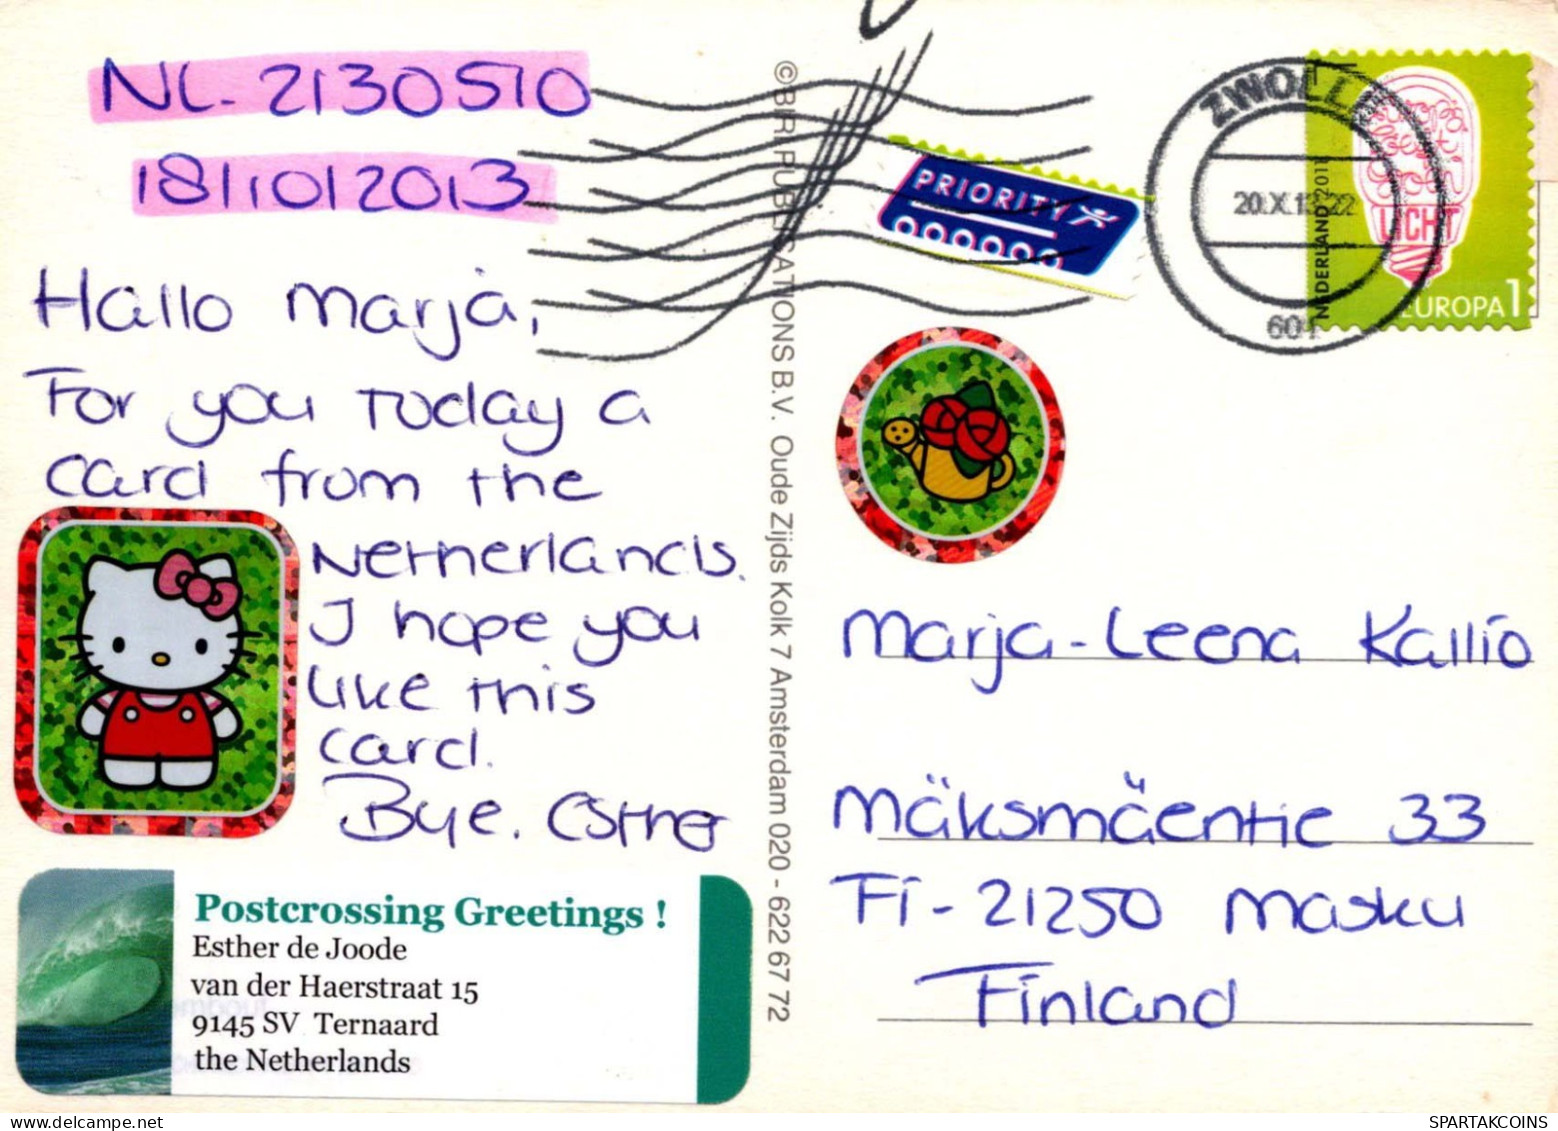 NL-2130510
18/10/2013
Hallo Marja,
For you today a
card from the
Netherlands.
I hope you
like this
card.
Bye. Esther
Postcrossing Greetings !
Esther de Joode
van der Haerstraat 15
9145 SV Ternaard
the Netherlands
©BIRI PUBLICATIONS B.V. Oude Zijds Kolk 7 Amsterdam 020 - 622 67 72
PRIORITY
ZWOLLE
20.X.13
NEDERLAND 2011
LICHT
EUROPA 1
Marja-Leena Kallio
Mäksmäentie 33
Fi-21250 Masku
Finland
SPARTAKCOINS